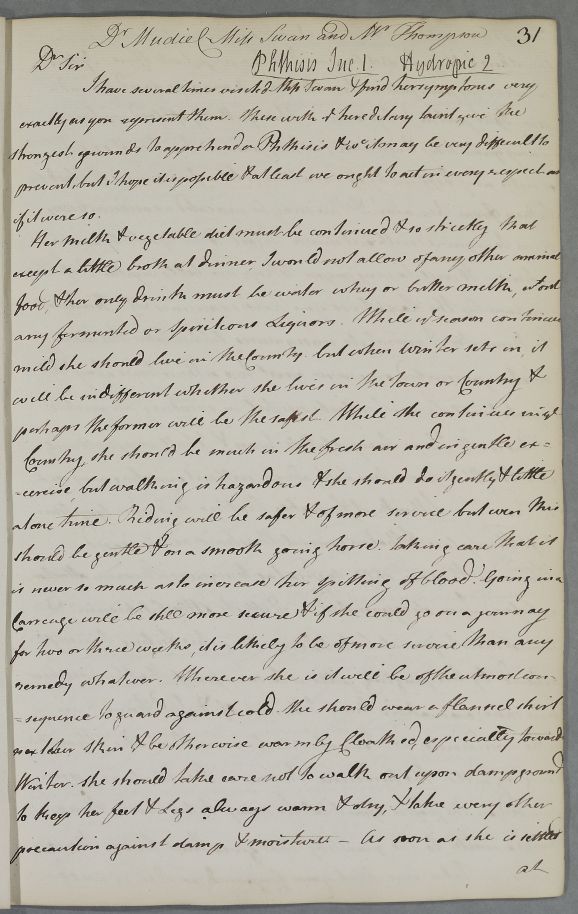 Dr Mudie ( Miss Swan and Mr Thompson 31
Dr Sir Phthisis Inc. 1. Hydropic 2
I have several times visited Miss Swan & find her symptoms very
exactly as you represent them. These with a hereditary taint give the
strongest grounds to apprehend a Phthisis & it may be very difficult to
prevent, but I hope it is possible & at least we ought to act in every respect as
if it were so.
Her milk & vegetable diet must be continued & so strictly that
except a little broth at dinner I would not allow of any other animal
food, & her only drink must be water whey or butter milk, without
any fermented or spiritious Liquors. While ye season continues
mild she should live in the Country but when Winter sets in, it
will be indifferent whether she lives in the town or Country &
perhaps the former will be the safest. While she continues in ye
Country, she should be much in the fresh air and in gentle ex=
=ercise, but walking is hazardous & she should do it gently & little
at one time. Riding will be safer & of more service but even this
should be gentle & on a smooth going horse. taking care that it
is never so much as to increase her spitting of blood. Going in a
Carreage will be still more secure & if she could go on a journay
for two or three weeks, it is likely to be of more service than any
remedy whatever. Wherever she is it will be of the utmost con-
=sequence to guard against cold. She should wear a flannel shirt
next her skin & be otherwise warmly Cloathed, especially toward
Winter. She should take care not to walk out upon damp ground
to keep her feet & Legs always warm & dry, & take every other
precaution against damp & moisture – As soon as she is settled
at